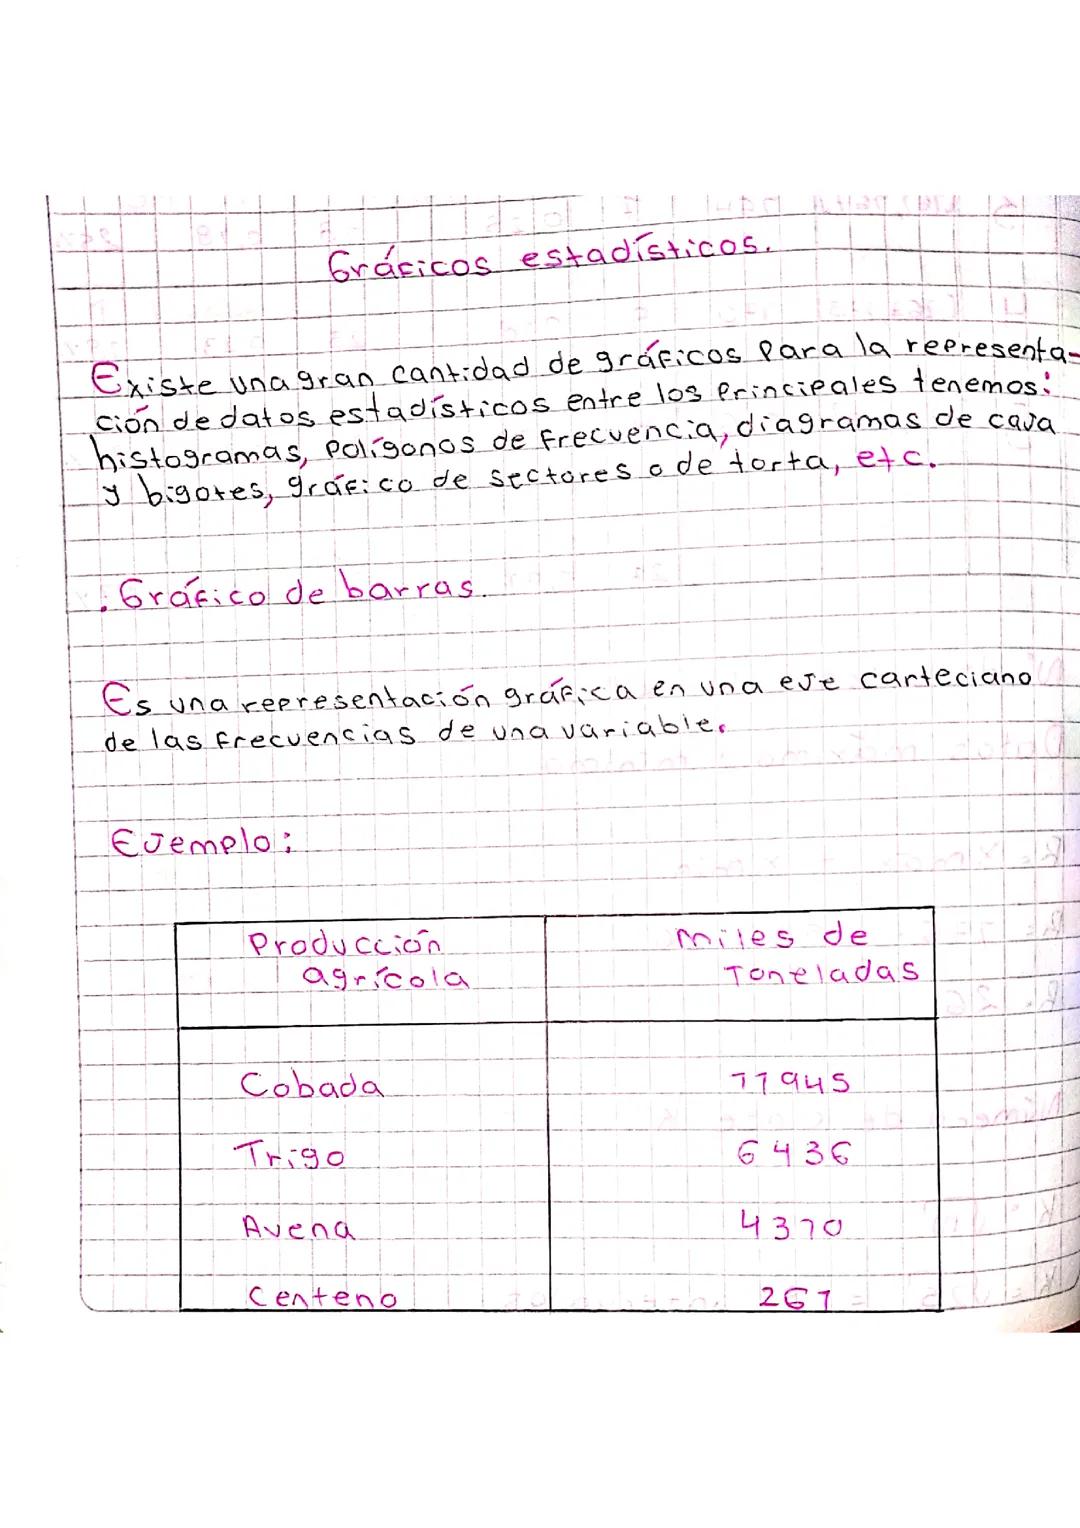 Gráficos estadísticos.
Existe una gran cantidad de gráficos para la representa-
ción de datos estadísticos entre los principales tenemos:
histogramas, polígonos de frecuencia, diagramas de caja
y bigotes, gráfico de sectores o de torta, etc.
. Gráfico de barras.
Es una representación gráfica en una eje carteciano
de las frecuencias de una variable.
Ejemplo:
Producción agrícola
Miles de Toneladas
Cobada 11945
Trigo 6436
Avena 4370
Centeno 267